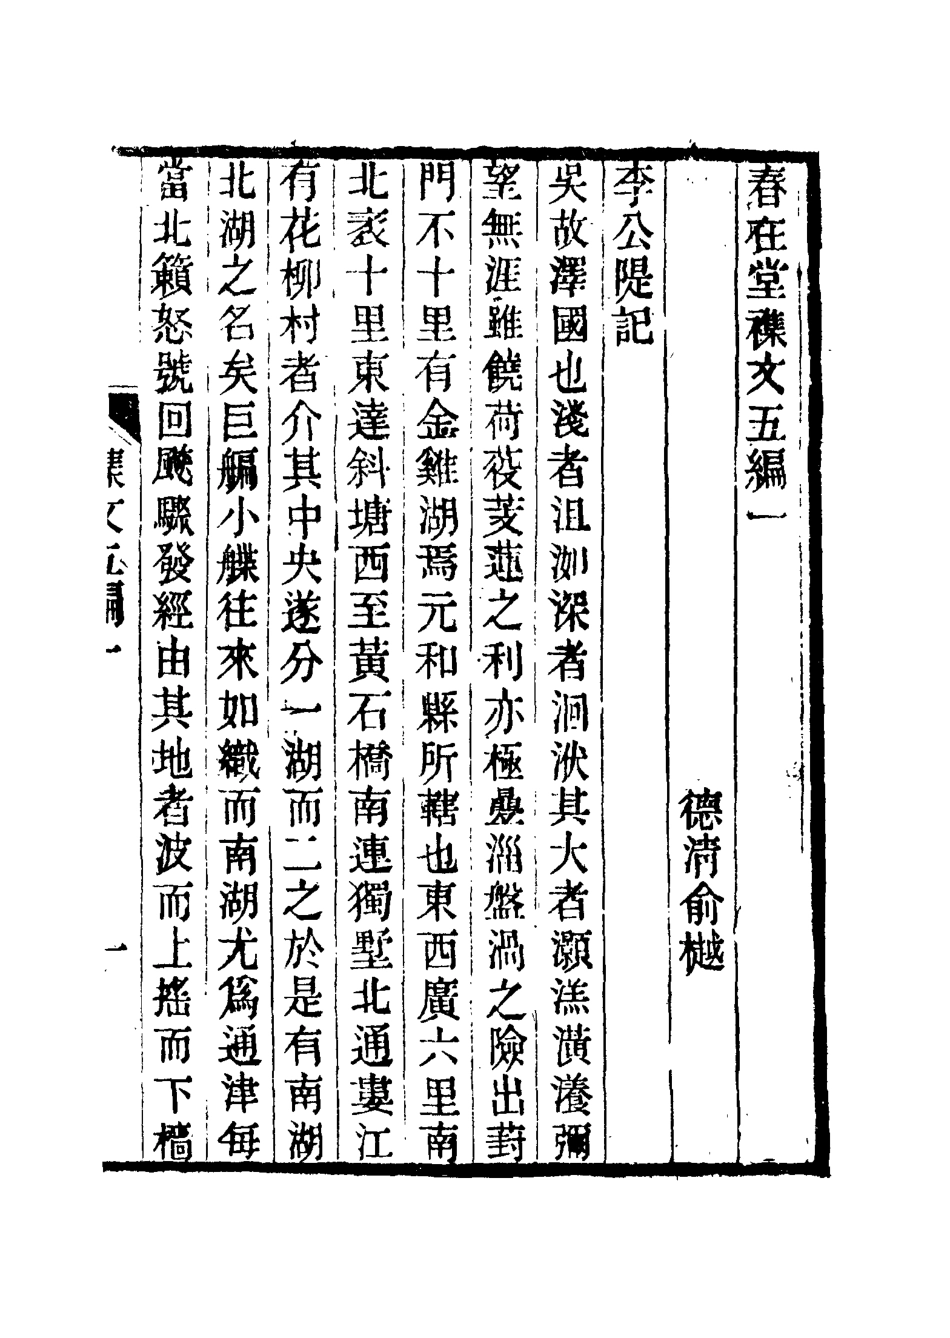 春在堂襍文五編一
德清俞樾
李公隄記
吳故澤國也淺者沮洳深者洄洑其大者灝溔潢瀁彌
望無涯雖饒荷芰茭蓮之利亦極㬪淄盤渦之險出葑
門不十里有金雞湖焉元和縣所轄也東西廣六里南
北袤十里東達斜塘西至黃石橋南連獨墅北通婁江
有花柳村者介其中央遂分一湖而二之於是有南湖
北湖之名矣巨艑小艓往來如織而南湖尤爲通津每
當北籟怒號回颷驟發經由其地者波而上搖而下檣
襍文五編一
一